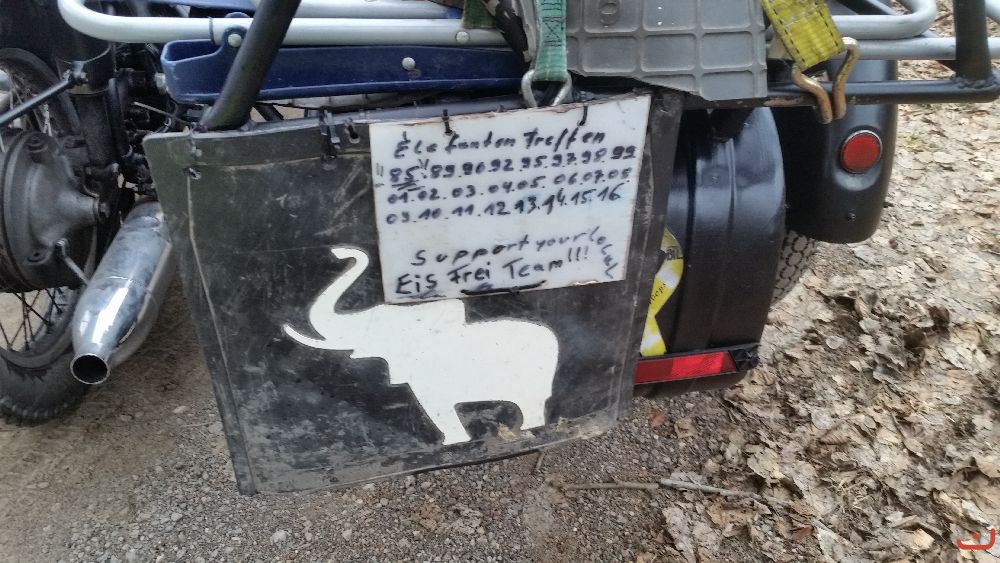 Elefanten Treffen
"85" 89.90.92.95.97.98.99
01.02.03.04.05.06.07.08
09.10.11.12.13.14.15.16
Support your local
Eis Frei Team!!!